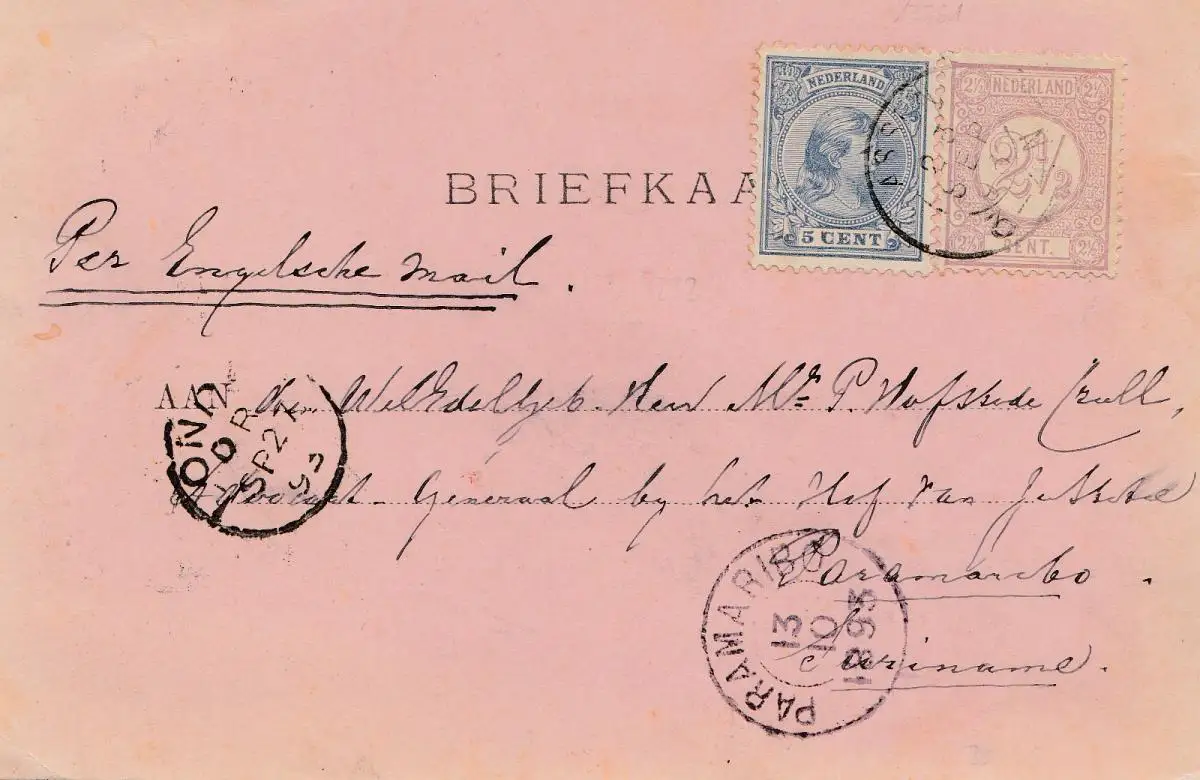 NEDERLAND
5 CENT
2½ NEDERLAND 2½
2½
2½ CENT. 2½
ASSEN
SEP
93
BRIEFKAA
Per Engelsche Mail.
AAN den WelEdelGeb. Heer Mr. P. Hofstede Crull,
Advocaat-Generaal by het Hof van Justitie
Paramaribo.
Suriname.
LONDO
D R
SP 27
93
PARAMARIBO
13
10
1893